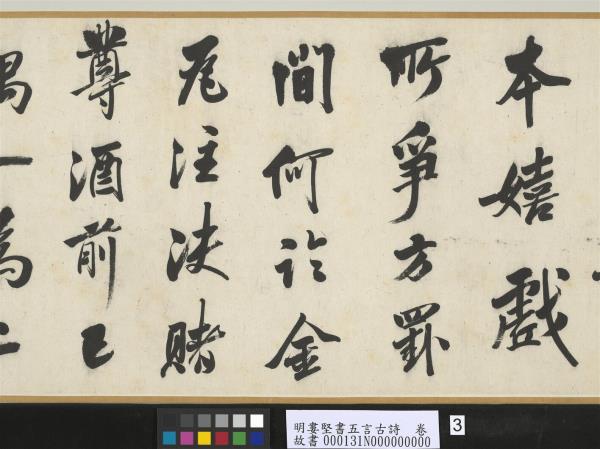 本嬉戲
所爭方罫
間何論金
瓦注決賭
尊酒前已
一為
明婁堅書五言古詩 卷
故書000131N000000000
3